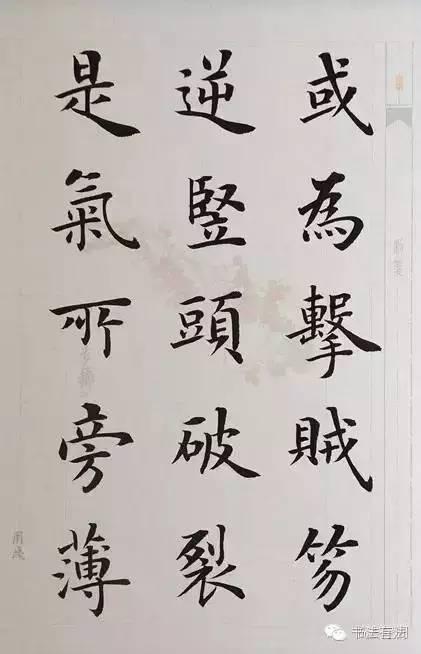 或為擊賊笏
逆豎頭破裂
是氣所旁薄
书法有法